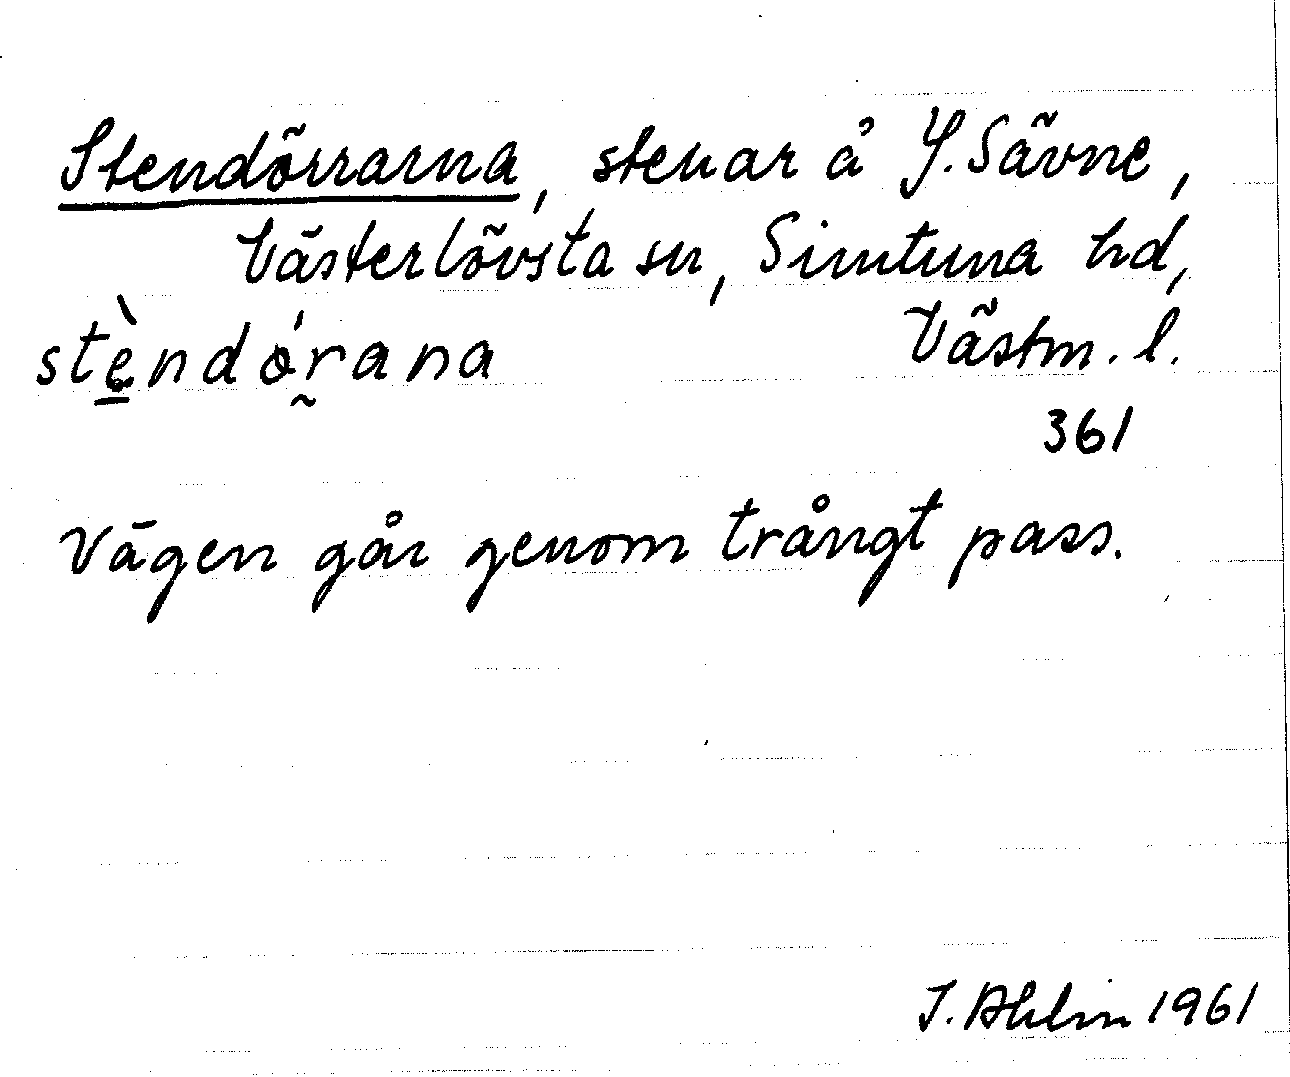 Stendörrarna, stenar å Y. Sävne,
Västerlövsta sn, Simtuna hd,
stèndǿrana Västm. l.
361
Vägen går genom trångt pass.
I. Ahlin 1961